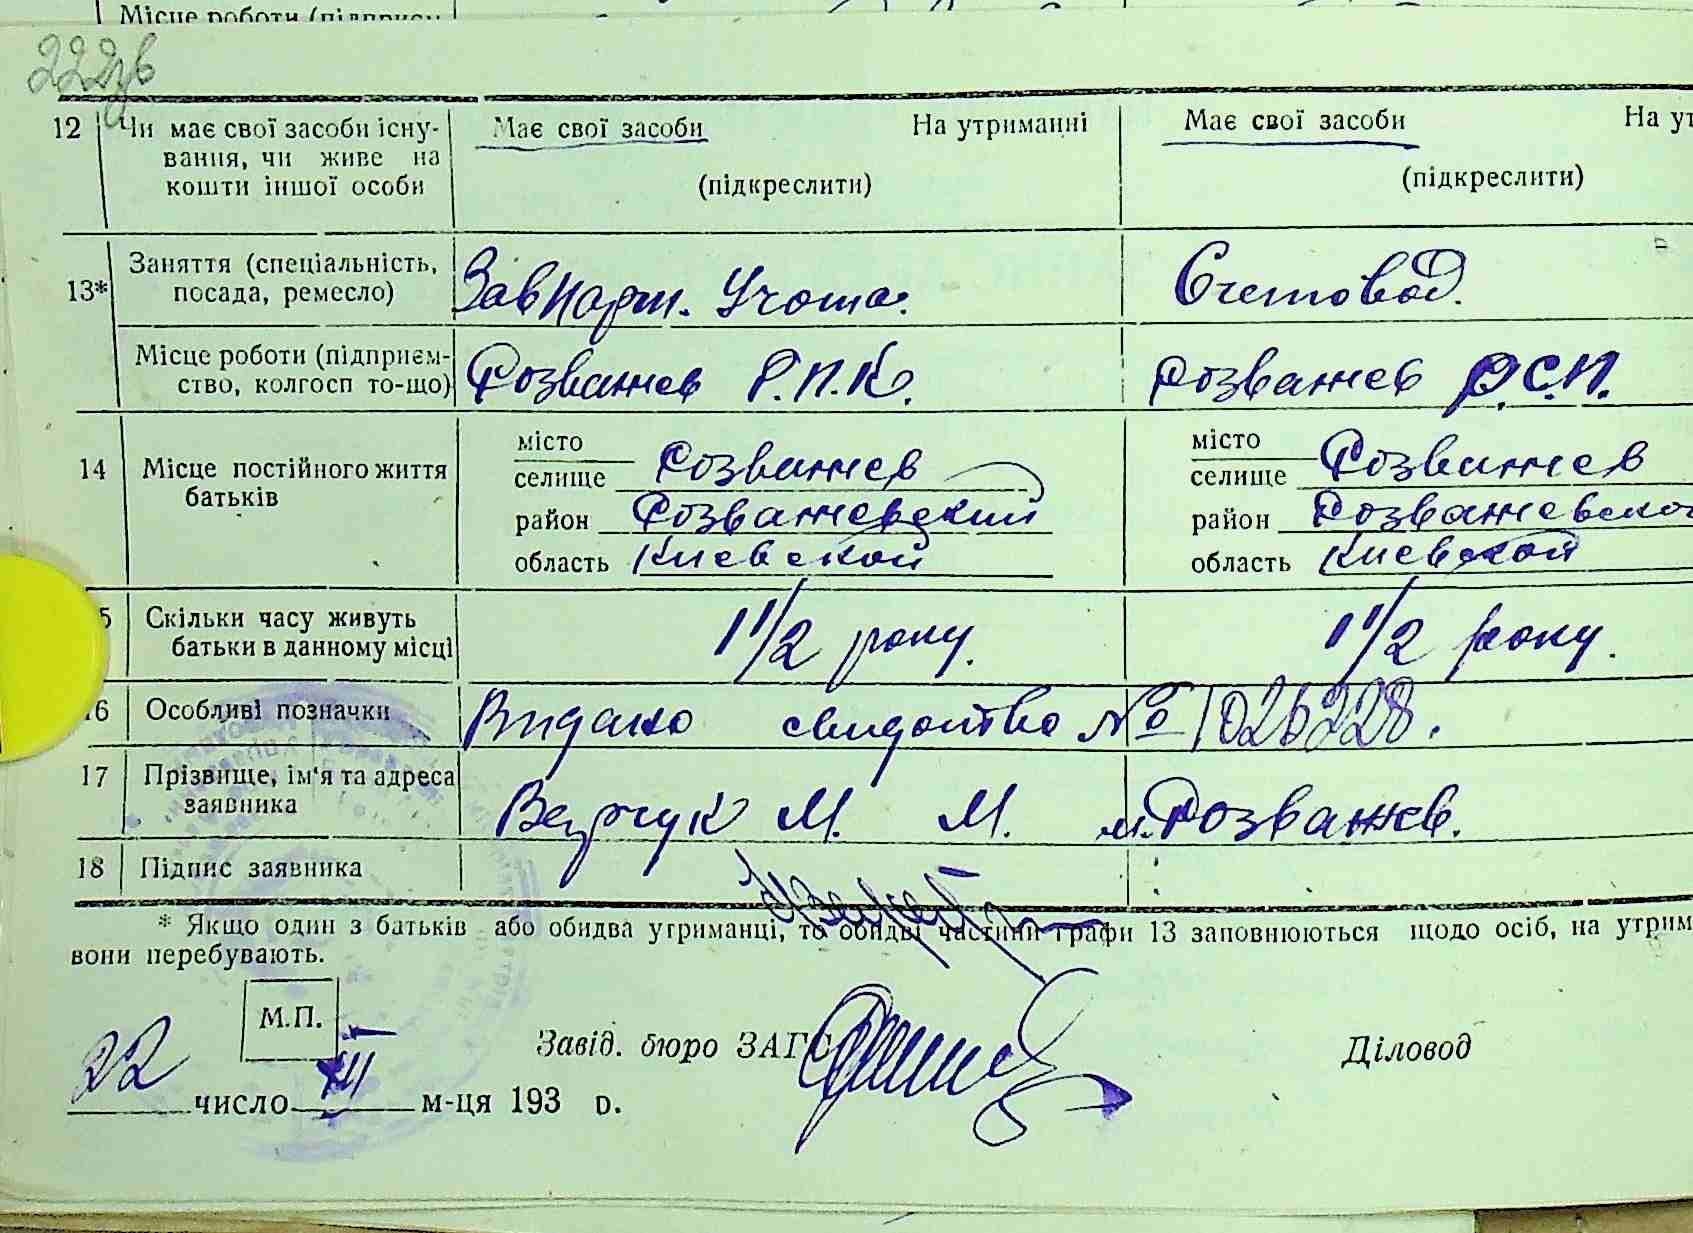 Місце роботи (підприєм-
222зв
12 Чи має свої засоби існу- Має свої засоби На утриманні Має свої засоби На ут
вання, чи живе на
кошти іншої особи (підкреслити) (підкреслити)
13* Заняття (спеціальність, Завпарт. Учота. Счетовод.
посада, ремесло)
Місце роботи (підприєм- Розважев Р.П.К. Розважев Р.С.П.
ство, колгосп то-що)
14 Місце постійного життя місто Розважев місто Розважев
батьків селище селище
район Розважевский район Розважевско
область Киевской область Киевской
5 Скільки часу живуть 1 1/2 року. 1 1/2 року.
батьки в данному місці
16 Особливі позначки Видано свидоцтво № 1026228.
17 Прізвище, ім'я та адреса М. М. м. Розважев.
заявника
18 Підпис заявника
* Якщо один з батьків або обидва утриманці, то обидві частини графи 13 заповнюються щодо осіб, на утрим
вони перебувають.
М.П.
Завід. бюро ЗАГС Діловод
22 число XII м-ця 193 р.